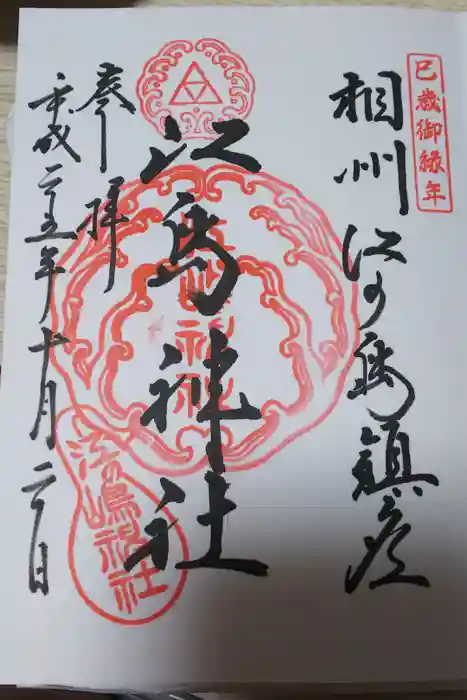 巳歳御縁年
相州江の島鎮座
江島神社
奉拝
平成二五年十月二日
江の嶋神社